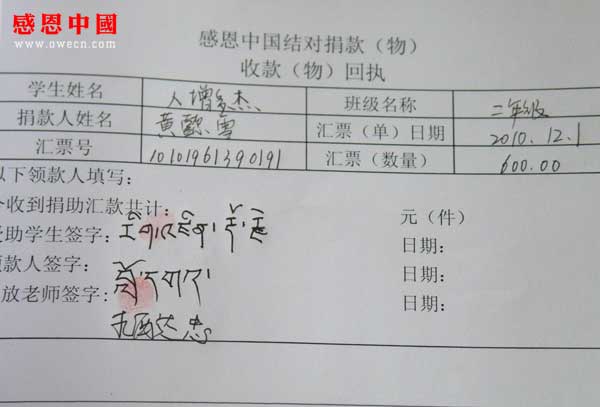 感恩中國
www.owecn.com
感恩中国结对捐款（物）
收款（物）回执
学生姓名 人增多杰 班级名称 二年级
捐款人姓名 黄懿雪 汇票（单）日期 2010.12.1
汇票号 10101961390191 汇票（数量） 600.00
以下领款人填写：
今收到捐助汇款共计： 元（件）
受助学生签字： 日期：
领款人签字： 日期：
放老师签字： 日期：